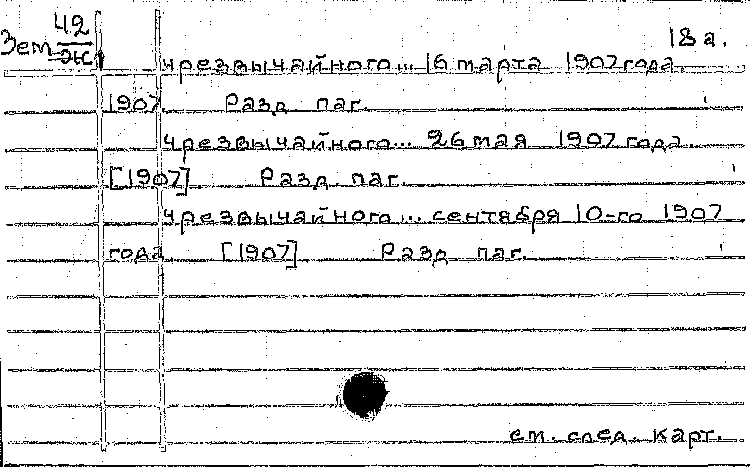 42
Зем. эк
18а.
чрезвычайного... 16 марта 1907 года.
1907. Разд. паг.
чрезвычайного... 26 мая 1907 года
[1907] Разд. паг.
чрезвычайного... сентября 10-го 1907
года. [1907] Разд. паг.
см. след. карт.